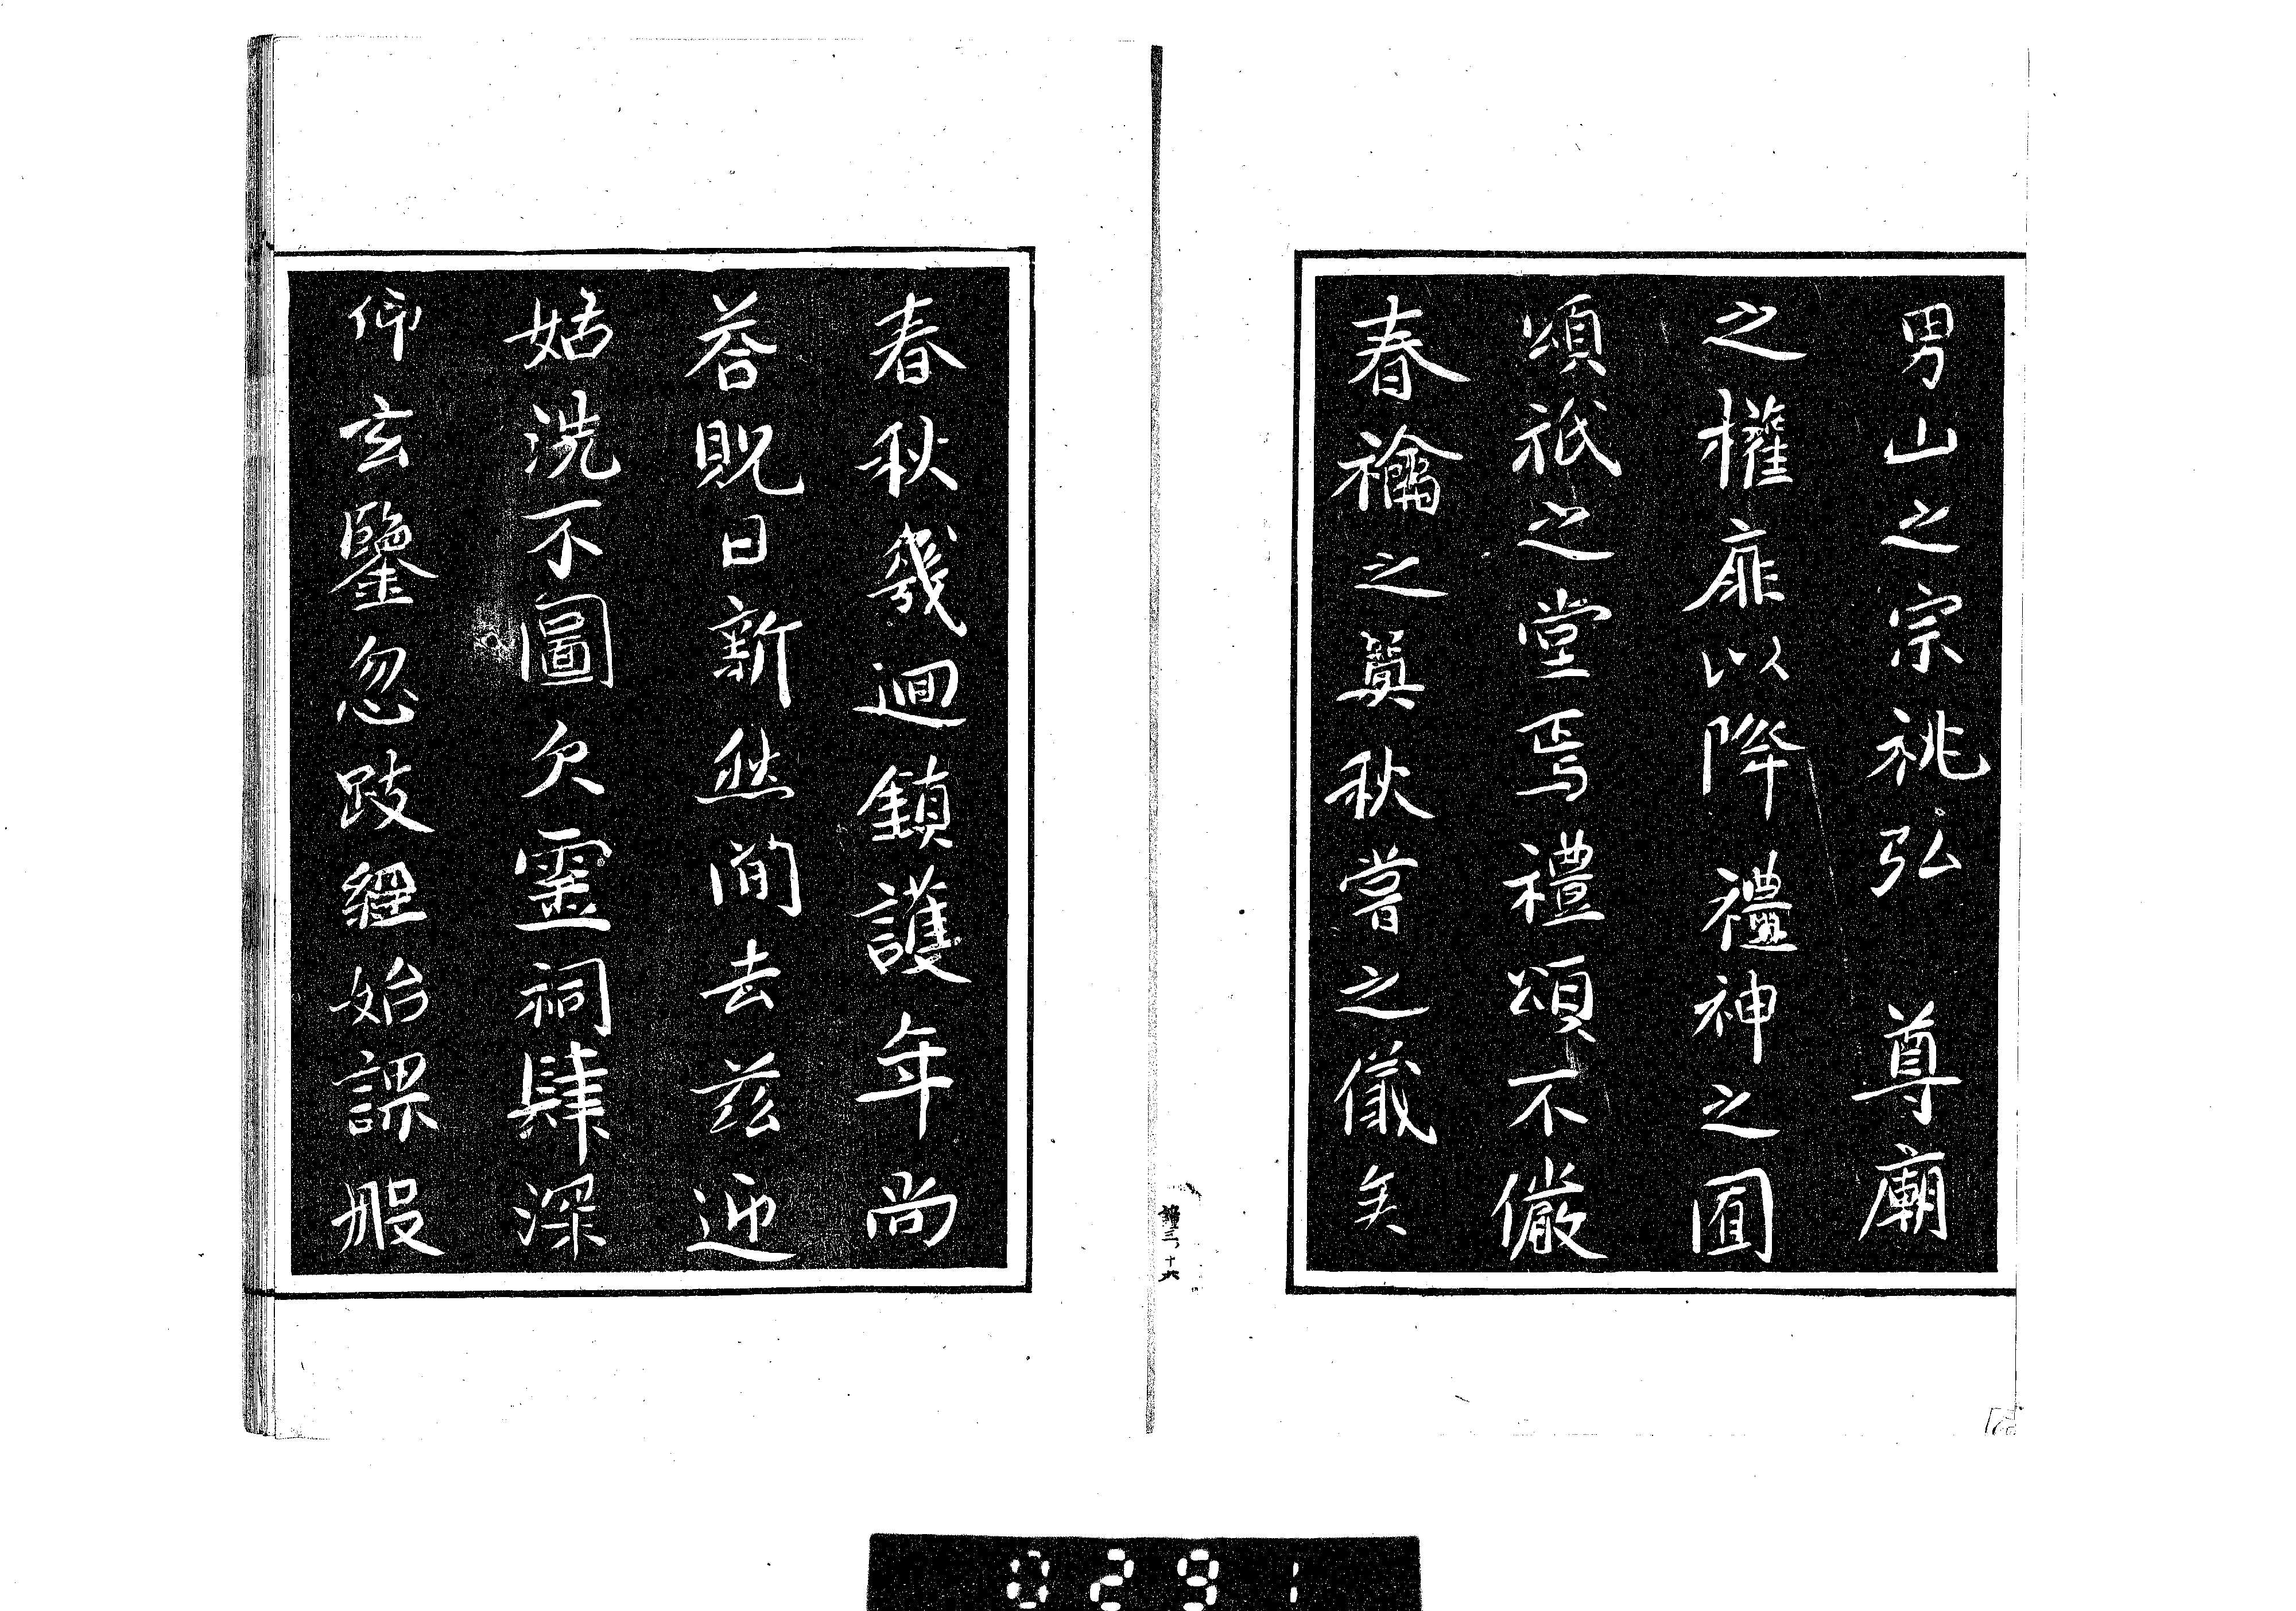 男山之宗祧弘　尊廟
之權扉以降禮神之圓
頌祇之堂焉禮頌不儼
春禴之奠秋嘗之儀矣
春秋幾迴鎮護年尚
荅貺日新然間去茲迎
姑洗不圖欠靈祠肆深
仰玄鑒忽跂經始課般
0291